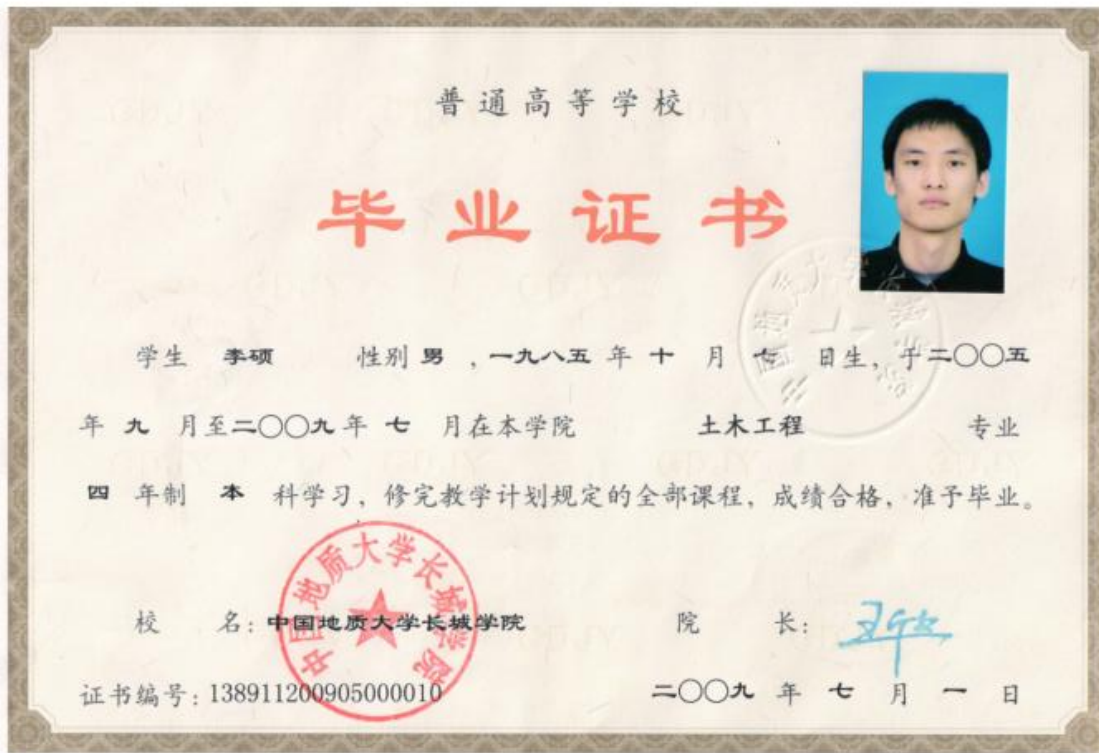 普通高等学校
毕业证书
学生 李硕 性别 男 ，一九八五 年 十 月 七 日生，于二〇〇五
年 九 月至二〇〇九年 七 月在本学院 土木工程 专业
四 年制 本 科学习，修完教学计划规定的全部课程，成绩合格，准予毕业。
中国地质大学长城学院
校 名：中国地质大学长城学院 院 长：
证书编号：138911200905000010 二〇〇九 年 七 月 一 日